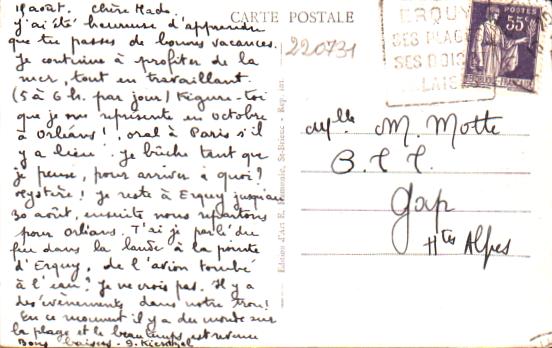 19 août. Chère Mado.
j'ai été heureuse d'apprendre
que tu passes de bonnes vacances.
Je continue à profiter de la
mer, tout en travaillant
(5 à 6 h. par jour) Figure-toi
que je me représente en octobre
à Orléans! oral à Paris s'il
y a lieu. Je bûche tant que
je peux, pour arriver à quoi?
mystère! Je reste à Erquy jusqu'au
30 août, ensuite nous repartons
pour Orléans. T'ai je parlé du
feu dans la lande à la pointe
d'Erquy, de l'avion tombé
à l'eau? Je ne crois pas. Il y a
des évènements dans notre trou!
En ce moment il y a du monde sur
la plage et le beau temps est revenu
Bons baisers -
CARTE POSTALE
220731
ERQUY
SES PLAGES
SES BOIS
POSTES
55c
Editions d'Art St-Brieuc
Mlle M. Motte
Gap
Htes Alpes